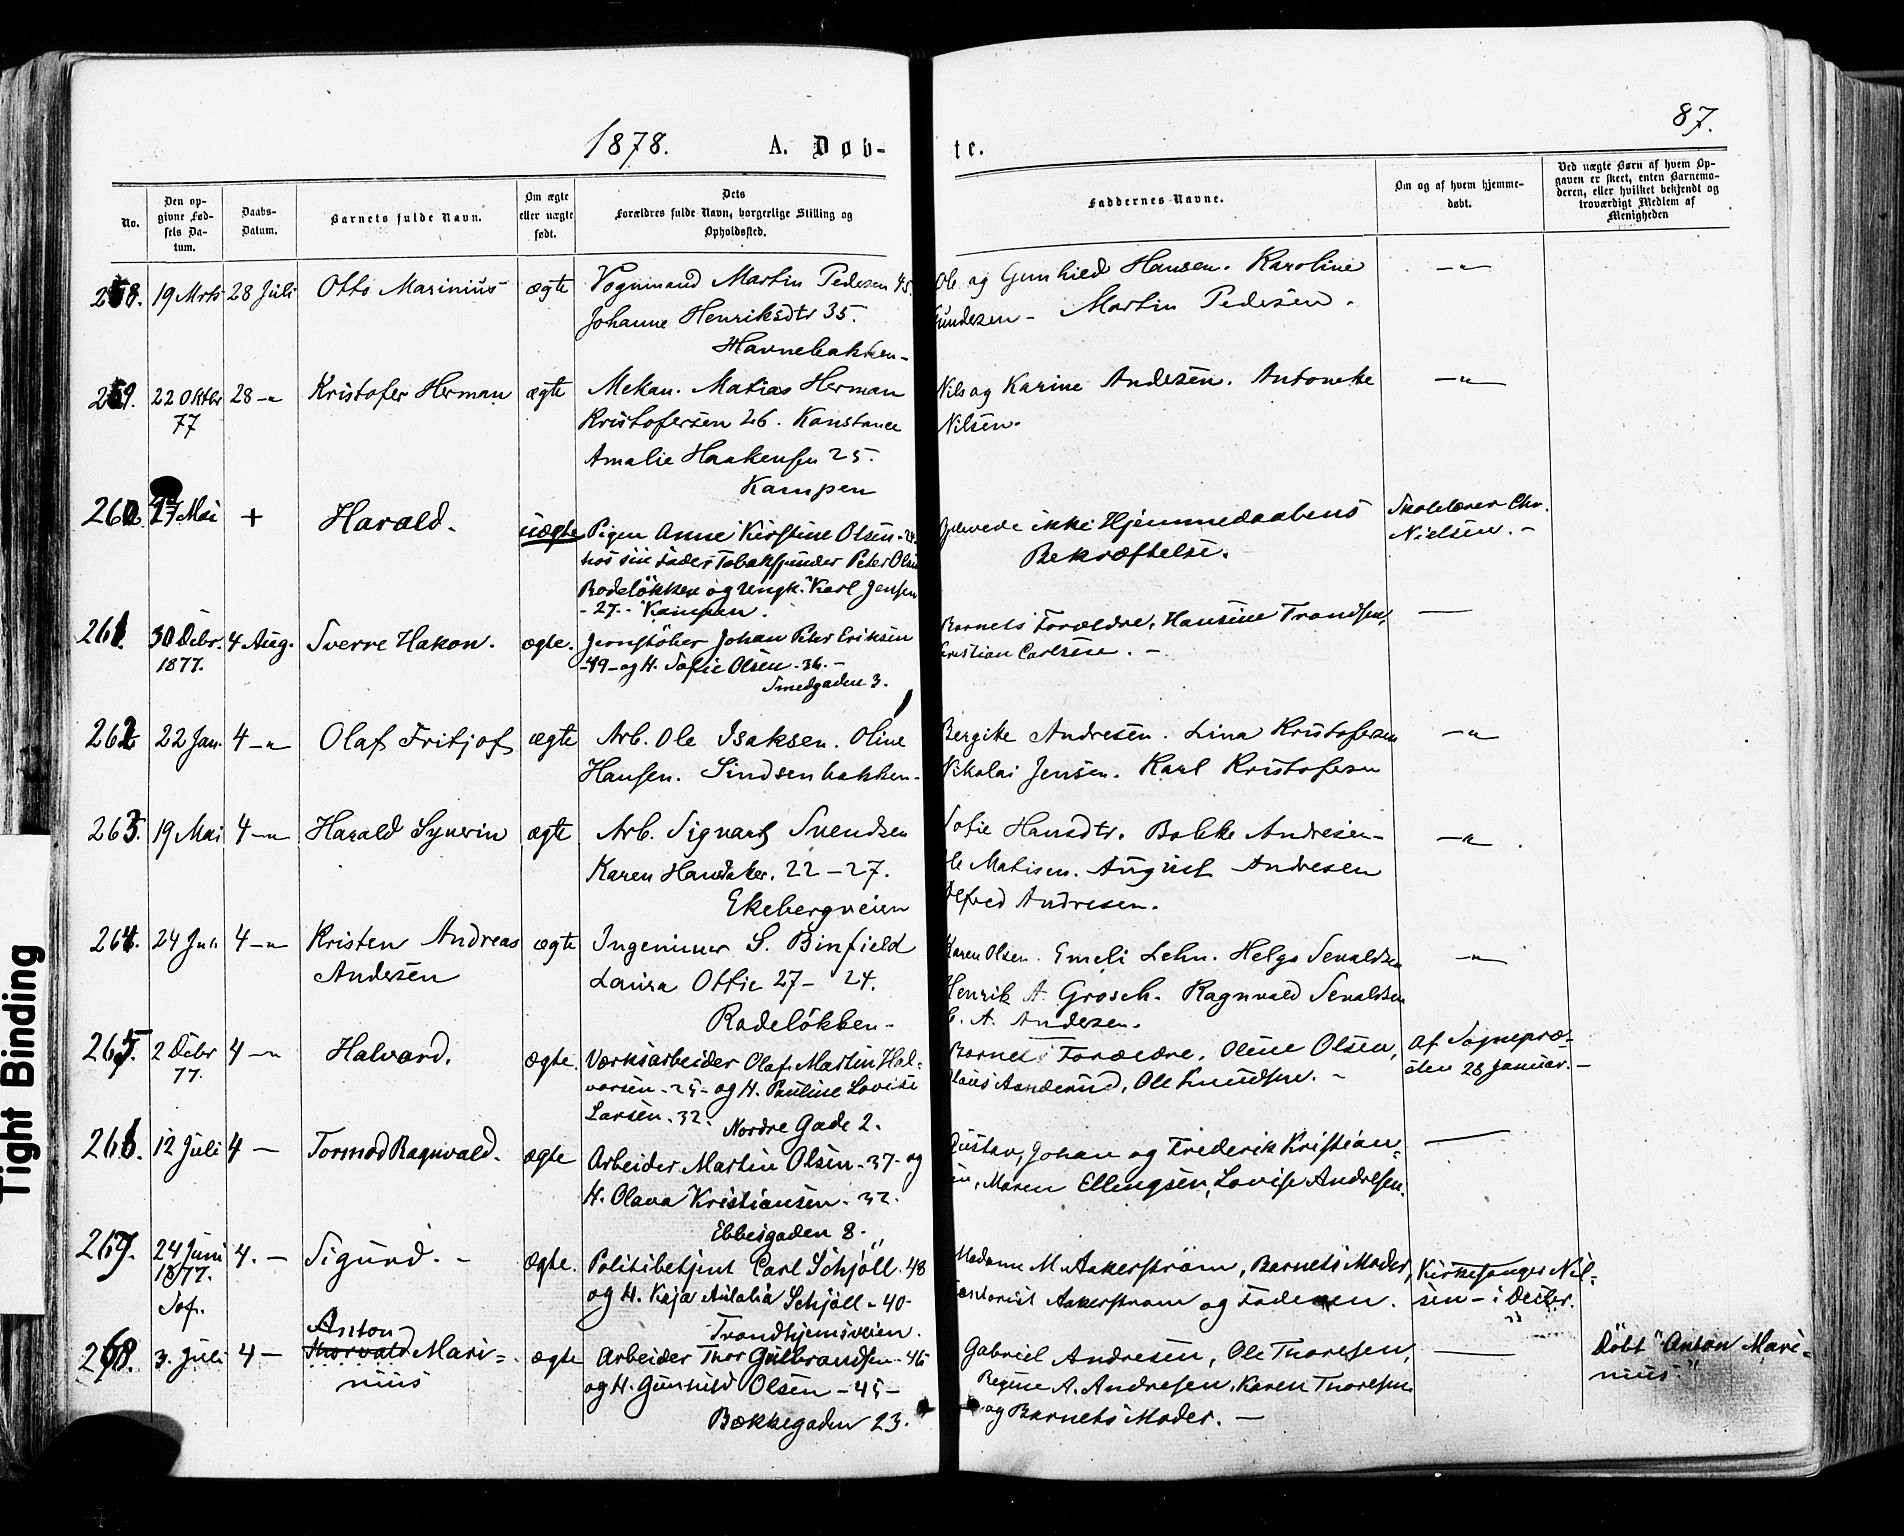 87.
1878. A. Døb- te.
No.
Den op-
givne Fød-
sels Da-
tum.
Daabs-
Datum.
Barnets fulde Navn.
Om ægte
eller uægte
født.
Dets
Forældres fulde Navn, borgerlige Stilling og
Opholdssted.
Faddernes Navne.
Om og af hvem hjemme-
døbt.
Ved uægte Børn af hvem Op-
gaven er skeet, enten Barnemo-
deren, eller hvilket bekjendt og
troværdigt Medlem af
Menigheden
258. 19 Mrts 28 Juli Otto Marinius ægte Vognmand Martin Pedesen 45. Ole og Gunhild Hansen. Karoline —"—
Johanne Henriksdtr 35. Gundesen - Martin Pedesen.
Havnebakken -
259. 22 Oktbr 28 -"- Kristofer Herman ægte Mekan. Matias Herman Nils og Karine Andesen. Antonette —"—
77 Kristofersen 26. Konstance Nilsen.
Amalie Haakensen 25.
Kampen
260. 27 Mai + Harald. uægte Pigen Anne Kirstine Olsen - hos sin Fader Tobaksspinder Peter Olsen ikke Hjemmedaabens Skolelærer Chr.
Rodeløkken og Ungk. Karl Jensen Bekræftelse. Nielsen. -
- 27 - Kampen.
261. 30 Debr. 4 Aug. Sverre Hakon. ægte. Jernstøber Johan Peter Eriksen Barnets Forældre, Hansine Trondsen, —
1877. - 49 - og H. Sofie Olsen - 36. - Kristian Carlsen. -
Smedgaden 3.
262 22 Jan. 4 -"- Olaf Fritjof ægte Arb. Ole Isaksen. Oline Bergite Andresen. Lina Kristofersen —"—
Hansen. Sindsenbakken - Nikolai Jensen. Karl Kristofersen
263. 19 Mai 4 -"- Harald Synerin ægte Arb. Sigvart Svendsen Sofie Hansdtr. Bolette Andresen - —"—
Karen 22 - 27. Ole Matisen. August Andresen
Ekebergveien Alfred Andresen.
264. 24 4 -"- Kristen Andreas ægte Ingeniør S. Binfield Karen Olsen. Emeli Lehn. Helga Sevaldsen —"—
Andesen Laura Ottie 27 - 24. Henrik A. Grosch. Ragnvald Sevaldsen
Rodeløkken - C. A. Andesen.
265. 2 Debr 4 -"- Halvard. ægte. Værksarbeider Olaf Martin Hal- Barnets Forældre, Oline Olsen, Af Sognepræ-
77. vorsen - 25 - og H. Pauline Lovise Aanderud, Ole Knudsen. - sten 28 Januar. -
Larsen - 32. Nordre Gade 2.
266. 12 Juli 4 - Tormod Ragnvald. ægte Arbeider Martin Olsen - 37 - og Gustav, Johan og Frederik Kristian- —
H. Olava Kristiansen - 32. sen, Maren Ellingsen, Lovise Andresen.
Ebbesgaden 8.
267. 24 Juni 4. - Sigurd. - ægte. Politibetjent Carl Schjøll - 48 Madame M. Aakerstrøm, Barnets Moder, Kirkesanger Nil-
1877. og H. Kaja Aulalia Schjøll - 40 - Aakerstrøm og Faderen. sen - i Decbr.
Trondhjemsveien.
268. 3. Juli 4 - Anton ~~Thorvald~~ Mari- ægte Arbeider Thor Gulbrandsen - 46 Gabriel Andresen, Ole Thoresen, — Døbt "Anton Mari-
nius og H. Gunhild Olsen - 45 - Regine A. Andresen, Karen Thoresen nius."
Bækkegaden 23. og Barnets Moder. -
Tight Binding